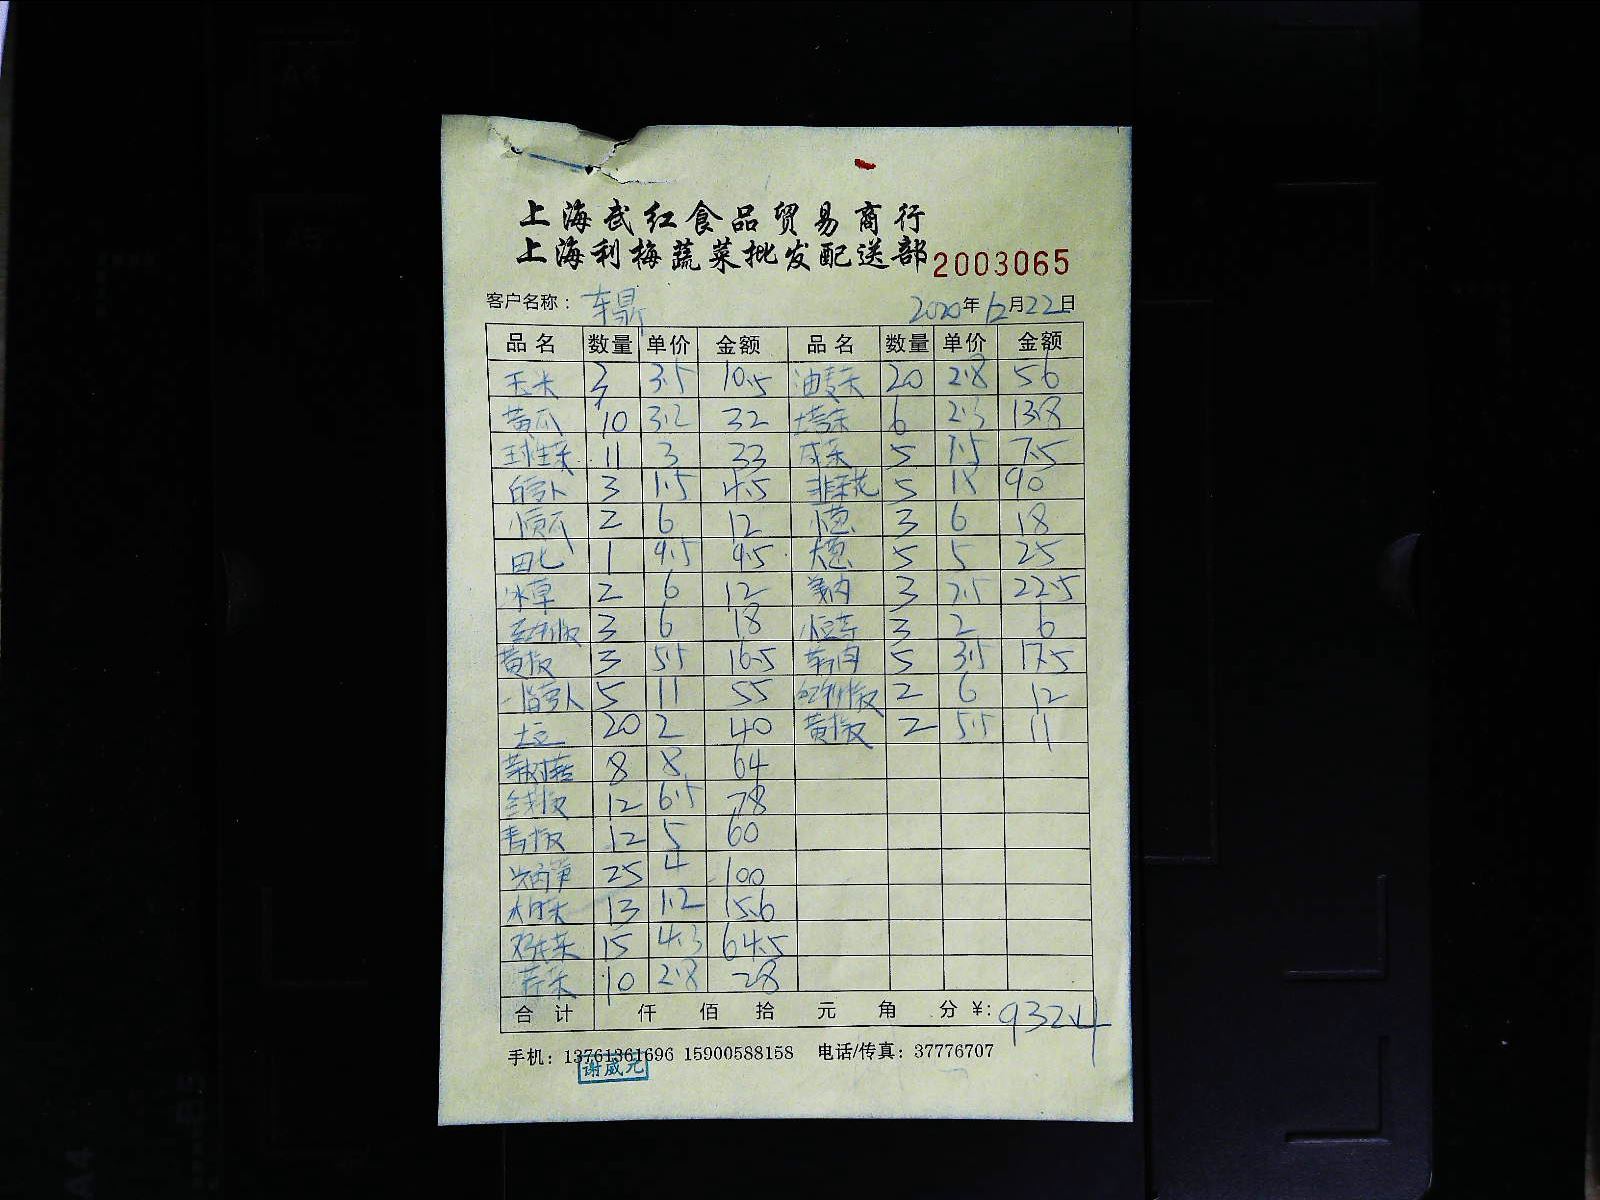 上海武红食品贸易商行
上海利梅蔬菜批发配送部 2003065
客户名称： 2020年12月22日
品名 数量 单价 金额 品名 数量 单价 金额
玉米 3 3.5 10.5 油麦菜 20 2.8 56
黄瓜 10 3.2 32 塔菜 6 2.3 13.8
球生菜 11 3 33 5 1.5 7.5
白萝卜 3 1.5 4.5 韭菜花 5 18 90
小黄瓜 2 6 12 小葱 3 6 18
田七 1 9.5 9.5 大葱 5 5 25
冰草 2 6 12 3 7.5 22.5
3 6 18 3 2 6
黄椒 3 5.5 16.5 5 3.5 17.5
一指萝卜 5 11 55 2 6 12
土豆 20 2 40 黄椒 2 5.5 11
茶树菇 8 8 64
12 6.5 78
青椒 12 5 60
25 4 100
13 1.2 15.6
15 4.3 64.5
芹菜 10 2.8 28
合计 仟 佰 拾 元 角 分 ¥: 932.4
手机：13761361696 15900588158 电话/传真：37776707
谢威元